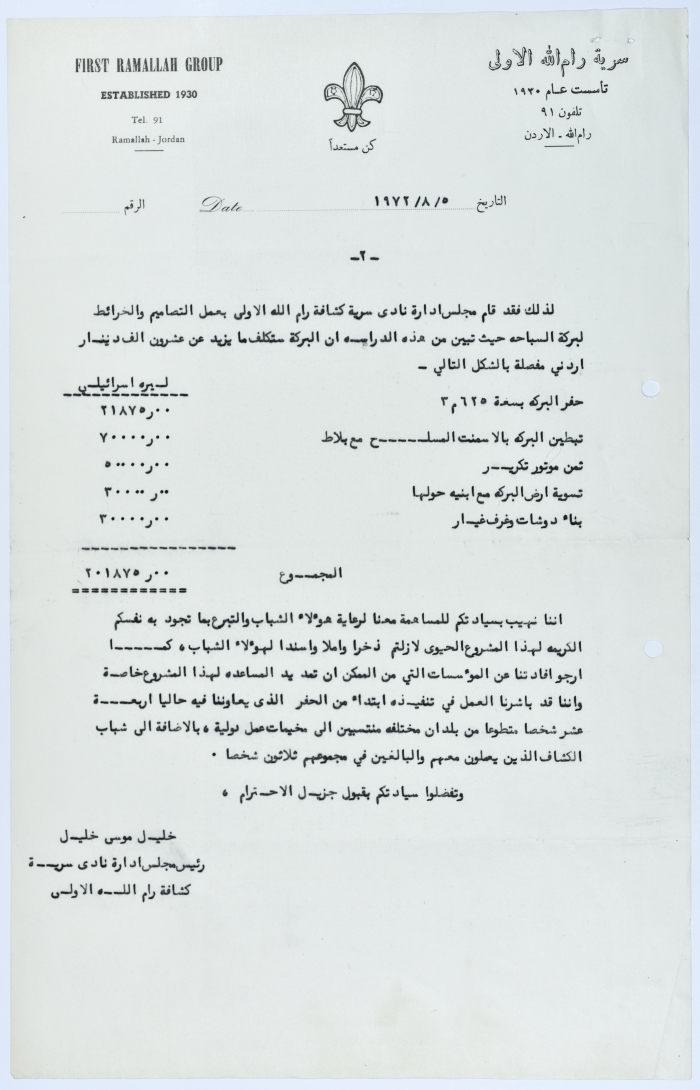 FIRST RAMALLAH GROUP
ESTABLISHED 1930
Tel. 91
Ramallah - Jordan
كن مستعداً
سرية رام الله الاولى
تأسست عام ١٩٣٠
تلفون ٩١
رام الله ـ الاردن
التاريخ ١٩٧٢/٨/٥ Date الرقم
ـ٢ـ
لذلك فقد قام مجلس ادارة نادى سرية كشافة رام الله الاولى بعمل التصاميم والخرائط
لبركة السباحه حيث تبين من هذه الدراسه ان البركة ستكلف ما يزيد عن عشرون الف دينار
اردني مفصلة بالشكل التالي ـ
ليره اسرائيلي
حفر البركه بسعة ٦٢٥ م٣ ٢١٨٧٥ر٠٠
تبطين البركه بالاسمنت المسلح مع بلاط ٧٠٠٠٠ر٠٠
ثمن موتور تكرير ٥٠٠٠٠ر٠٠
تسوية ارض البركه مع ابنيه حولها ٣٠٠٠٠ر٠٠
بناء دوشات وغرف غيار ٣٠٠٠٠ر٠٠
المجموع ٢٠١٨٧٥ر٠٠
اننا نهيب بسيادتكم للمساهمة معنا لرعاية هؤلاء الشباب والتبرع بما تجود به نفسكم
الكريمه لهذا المشروع الحيوى لازلتم ذخرا واملا واسندا لهؤلاء الشباب ، كما
ارجو افادتنا عن المؤسسات التي من الممكن ان تمد يد المساعده لهذا المشروع خاصة
واننا قد باشرنا العمل في تنفيذه ابتداء من الحفر الذى يعاوننا فيه حاليا اربعة
عشر شخصا متطوعا من بلدان مختلفه منتسبين الى مخيمات عمل دولية ، بالاضافة الى شباب
الكشاف الذين يعملون معهم والبالغين في مجموعهم ثلاثون شخصا .
وتفضلوا سيادتكم بقبول جزيل الاحترام ،
خليل موسى خليل
رئيس مجلس ادارة نادى سرية
كشافة رام الله الاولى